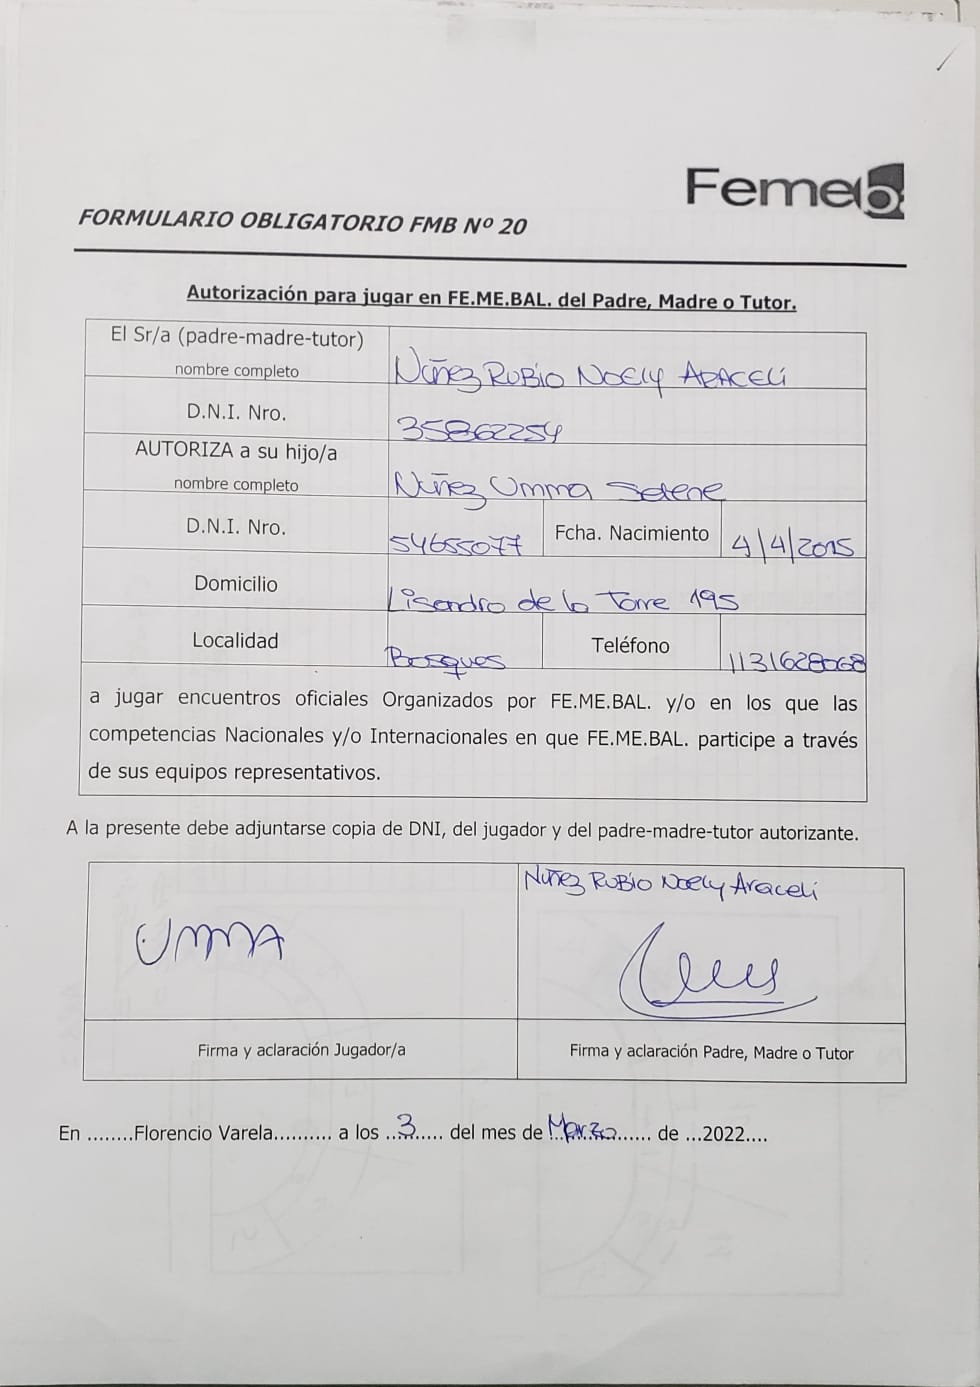 Feme
FORMULARIO OBLIGATORIO FMB Nº 20
Autorización para jugar en FE.ME.BAL. del Padre, Madre o Tutor.
El Sr/a (padre-madre-tutor)
nombre completo
Núñez Rubio Noely Araceli
D.N.I. Nro.
35862254
AUTORIZA a su hijo/a
nombre completo
Núñez Umma Selene
D.N.I. Nro.
54655077
Fcha. Nacimiento
4/4/2015
Domicilio
Lisandro de la Torre 195
Localidad
Bosques
Teléfono
1131628068
a jugar encuentros oficiales Organizados por FE.ME.BAL. y/o en los que las
competencias Nacionales y/o Internacionales en que FE.ME.BAL. participe a través
de sus equipos representativos.
A la presente debe adjuntarse copia de DNI, del jugador y del padre-madre-tutor autorizante.
UMMA
Nuñez Rubio Noely Araceli
Firma y aclaración Jugador/a
Firma y aclaración Padre, Madre o Tutor
En ........Florencio Varela.......... a los ..3..... del mes de Marzo...... de ...2022....